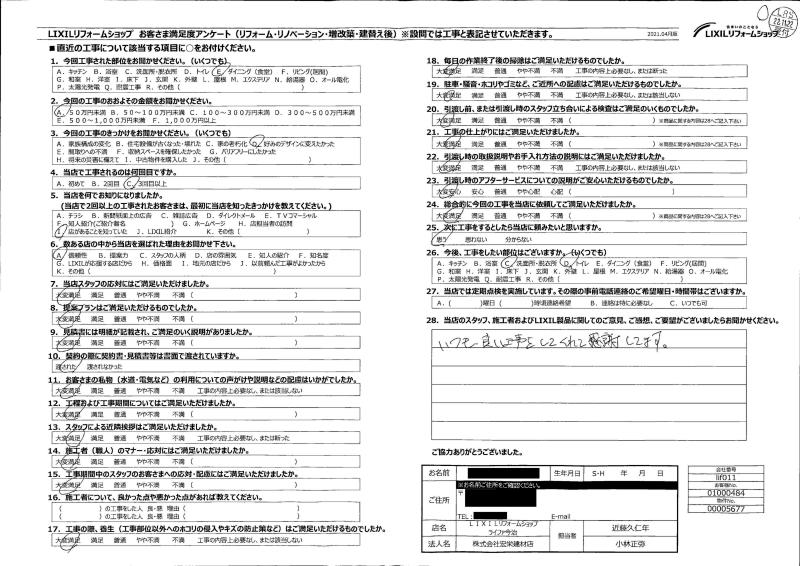 LIXILリフォームショップ お客さま満足度アンケート（リフォーム・リノベーション・増改築・建替え後）※設問では工事と表記させていただきます。
2021.04月版
LIXILリフォームショップ
■直近の工事について該当する項目に○をお付けください。
1．今回工事された部位をお聞かせください。（いくつでも）
A．キッチン B．浴室 C．洗面所・脱衣所 D．トイレ E．ダイニング（食堂） F．リビング（居間）
G．和室 H．洋室 I．床下 J．玄関 K．外壁 L．屋根 M．エクステリア N．給湯器 O．オール電化
P．太陽光発電 Q．耐震工事 R．その他（ ）
2．今回の工事のおおよその金額をお聞かせください。
A．50万円未満 B．50～100万円未満 C．100～300万円未満 D．300～500万円未満
E．500～1,000万円未満 F．1,000万円以上
3．今回の工事のきっかけをお聞かせください。（いくつでも）
A．家族構成の変化 B．住宅設備が古くなった・壊れた C．家の老朽化 D．好みのデザインに変えたかった
E．間取りへの不満 F．収納スペースを確保したかった G．バリアフリーにしたかった
H．将来の災害に備えて I．中古物件を購入した J．その他（ ）
4．当店で工事されるのは何回目ですか。
A．初めて B．2回目 C．3回目以上
5．当店を何でお知りになりましたか。
（当店で2回以上の工事されたお客さまは、最初に当店を知ったきっかけを教えてください。）
A．チラシ B．新聞紙面上の広告 C．雑誌広告 D．ダイレクトメール E．TVコマーシャル
F．知人紹介（ご紹介者名 ） G．ホームページ H．店担当者の訪問
I．店があることを知っていた J．LIXIL紹介 K．その他（ ）
6．数ある店の中から当店を選ばれた理由をお聞かせ下さい。
A．信頼性 B．提案力 C．スタッフの人柄 D．店の雰囲気 E．知人の紹介 F．知名度
G．LIXILが応援する店だから H．価格面 I．地元の店だから J．以前頼んだ工事がよかったから
K．その他（ ）
7．当店スタッフの応対にはご満足いただけましたか。
大変満足 満足 普通 やや不満 不満（ ）
8．提案プランはご満足いただけるものでしたか。
大変満足 満足 普通 やや不満 不満（ ）
9．見積書には明細が記載され、ご満足のいく説明がありましたか。
大変満足 満足 普通 やや不満 不満（ ）
10．契約の際に契約書・見積書等は書面で渡されていますか。
渡された 渡されなかった
11．お客さまの私物（水道・電気など）の利用についての声がけや説明などの配慮はいかがでしたか。
大変満足 満足 普通 やや不満 不満 工事の内容上必要なし、または該当しない
12．工程および工事期間についてはご満足いただけましたか。
大変満足 満足 普通 やや不満 不満（ ）
13．スタッフによる近隣挨拶はご満足いただけましたか。
大変満足 満足 普通 やや不満 不満 工事の内容上必要なし、または断った
14．施工者（職人）のマナー・応対にはご満足いただけましたか。
大変満足 満足 普通 やや不満 不満（ ）
15．工事期間中のスタッフのお客さまへの応対・配慮にはご満足いただけましたか。
大変満足 満足 普通 やや不満 不満（ ）
16．施工者について、良かった点や悪かった点があれば教えてください。
（ ）の工事をした人 良・悪 理由（ ）
（ ）の工事をした人 良・悪 理由（ ）
17．工事の際、養生（工事部位以外へのホコリの侵入やキズの防止策など）はご満足いただけるものでしたか。
大変満足 満足 普通 やや不満 不満 工事の内容上必要なし、または該当しない
18．毎日の作業終了後の掃除はご満足いただけるものでしたか。
大変満足 満足 普通 やや不満 不満 工事の内容上必要なし、または断った
19．駐車・騒音・ホコリやゴミなど、ご近所への配慮はご満足いただけるものでしたか。
大変満足 満足 普通 やや不満 不満 工事の内容上必要なし、または該当しない
20．引渡し前、または引渡し時のスタッフ立ち会いによる検査はご満足のいくものでしたか。
大変満足 満足 普通 やや不満 不満（ ）※商品に関する内容は28へご記入下さい
21．工事の仕上がりにはご満足いただけましたか。
大変満足 満足 普通 やや不満 不満（ ）※商品に関する内容は28へご記入下さい
22．引渡し時の取扱説明やお手入れ方法の説明にはご満足いただけましたか。
大変満足 満足 普通 やや不満 不満 工事の内容上必要なし、または該当しない
23．引渡し時のアフターサービスについての説明がご安心いただけるものでしたか。
大変安心 安心 普通 やや心配 心配（ ）
24．総合的に今回の工事を当店に依頼してご満足いただけましたか。
大変満足 満足 普通 やや不満 不満（ ）※商品に関する内容は28へご記入下さい
25．次に工事をするとしたら当店に頼みたいと思いますか。
思う 思わない 分からない
26．今後、工事をしたい部位はございますか。（いくつでも）
A．キッチン B．浴室 C．洗面所・脱衣所 D．トイレ E．ダイニング（食堂） F．リビング（居間）
G．和室 H．洋室 I．床下 J．玄関 K．外壁 L．屋根 M．エクステリア N．給湯器 O．オール電化
P．太陽光発電 Q．耐震工事 R．その他（ ）
27．当店では定期点検を実施しています。その際の事前電話連絡のご希望曜日・時間帯はございますか。
A．（ ）曜日（ ）時頃連絡希望 B．連絡は特に必要なし C．いつでも可
28．当店のスタッフ、施工者およびLIXIL製品に関してのご意見、ご感想、ご要望がございましたらお聞かせください。
いつも良い工事をしてくれて感謝してます。
ご協力ありがとうございました。
お名前 生年月日 S・H 年 月 日
※お名前ご住所をご確認ください。
ご住所 〒
TEL： E-mail
店名 LIXILリフォームショップ ライファ今治 担当者 近藤久仁年
法人名 株式会社宏栄建材店 小林正弥
会社番号
lif011
お客様No.
01000484
物件No.
00005677